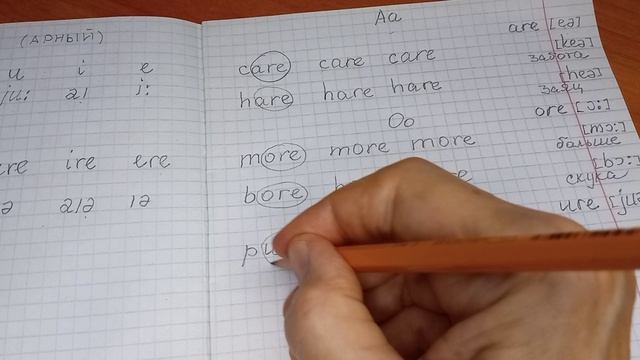 (АРНЫЙ)
u i e
ju: aı i:
ire ere
aıə ıə
Aa
care care care
hare hare hare
Oo
more more more
bore
are [eə]
[keə]
забота
[heə]
заяц
ore [ɔ:]
[mɔ:]
больше
[bɔ:]
скука
ure